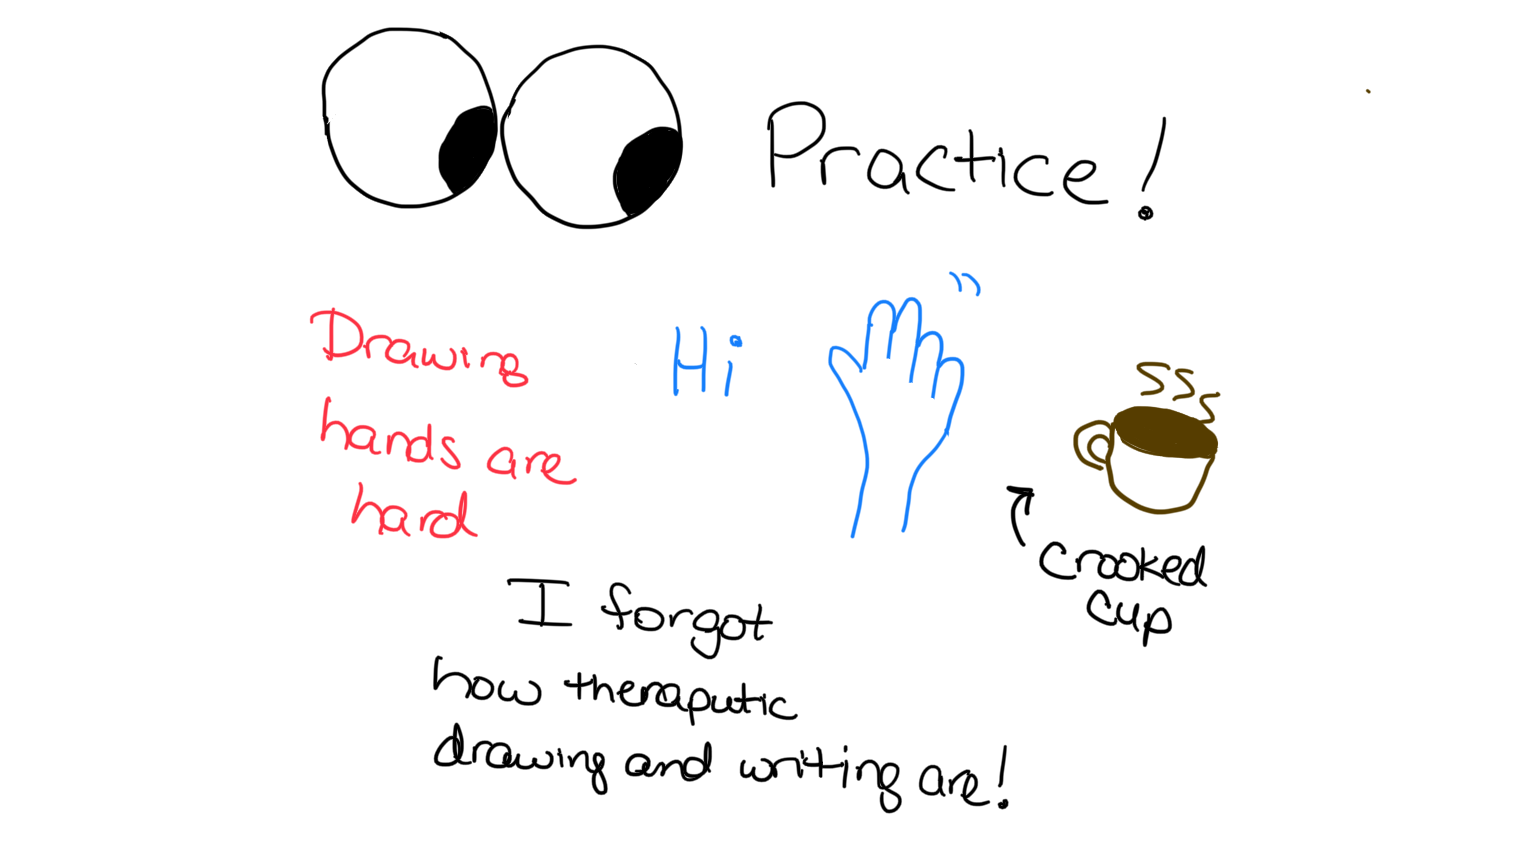 Practice!
Drawing
hands are
hard
Hi
crooked
cup
I forgot
how theraputic
drawing and writing are!